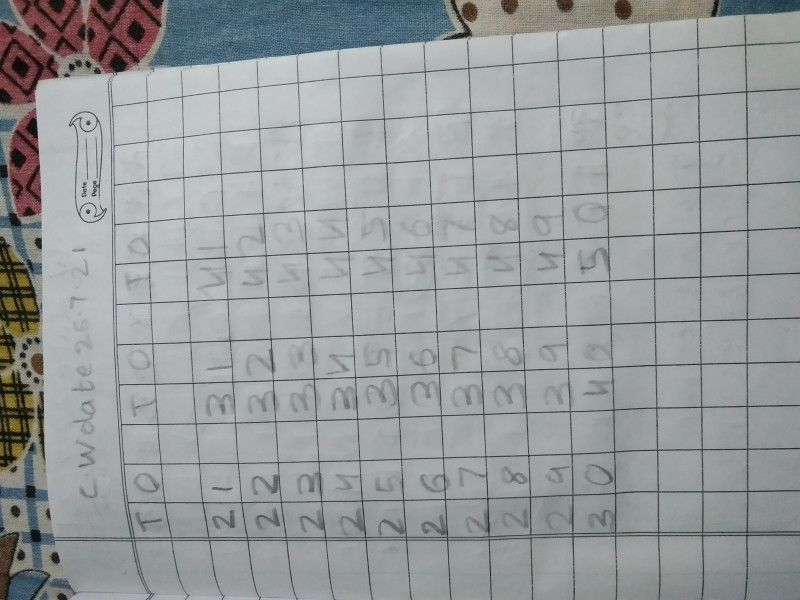 C.W date 26.7.21
Date
Page
T O T O T O
2 1 3 1 4 1
2 2 3 2 4 2
2 3 3 3 4 3
2 4 3 4 4 4
2 5 3 5 4 5
2 6 3 6 4 6
2 7 3 7 4 7
2 8 3 8 4 8
2 9 3 9 4 9
3 0 4 0 5 0